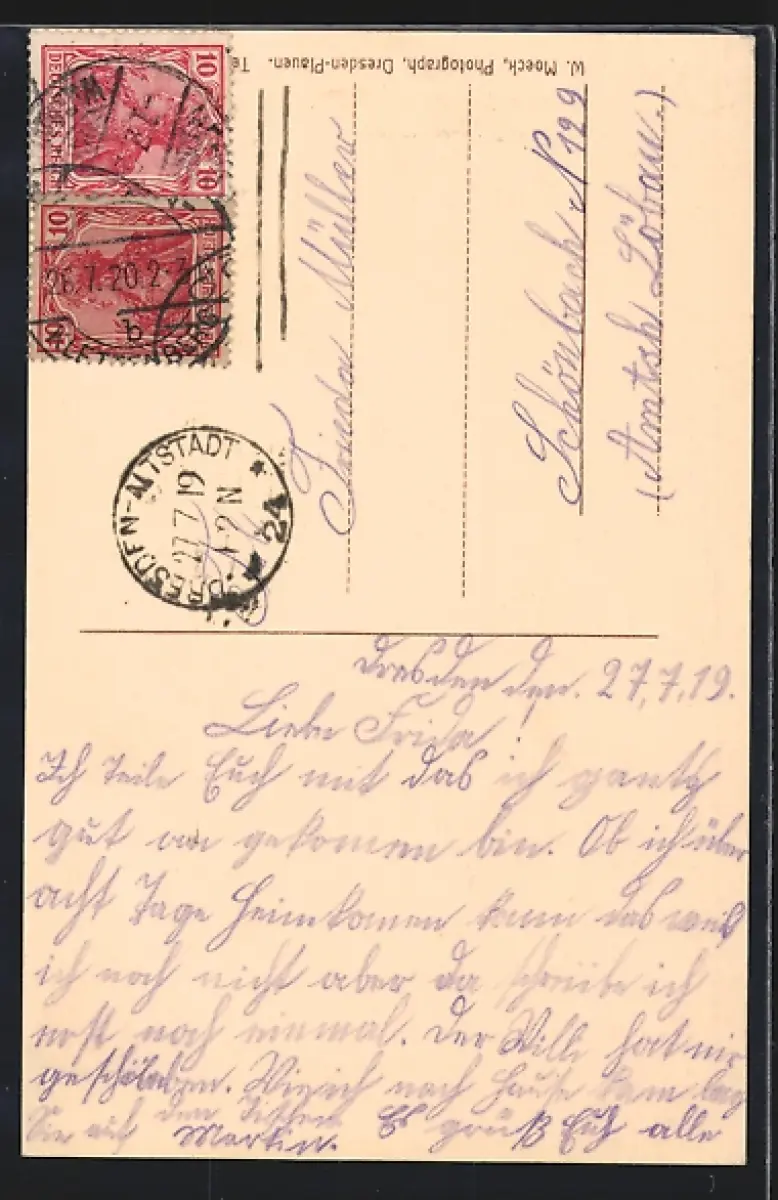 W. Moeck, Photograph, Dresden-Plauen. Te
10 10
DEUTSCHES REICH
10 10
26.7.20.2-
b
DRESDEN-ALTSTADT
27.7.19
1-2N
* 24
Frieda Müller
Schönbach N 129
(Amtsh Löbau.)
Dresden den. 27.7.19.
Liebe Frida!
Ich teile Euch mit das ich gantz
gut an gekommen bin. Ob ich über
acht Tage Heimkomen kann das weis
ich noch nicht aber da schreibe ich
erst noch einmal. Der Willi hat mir
geschrieben. Wie ich nach Hause kam lag
Sie auf den
Martin. Es grüß Euch alle